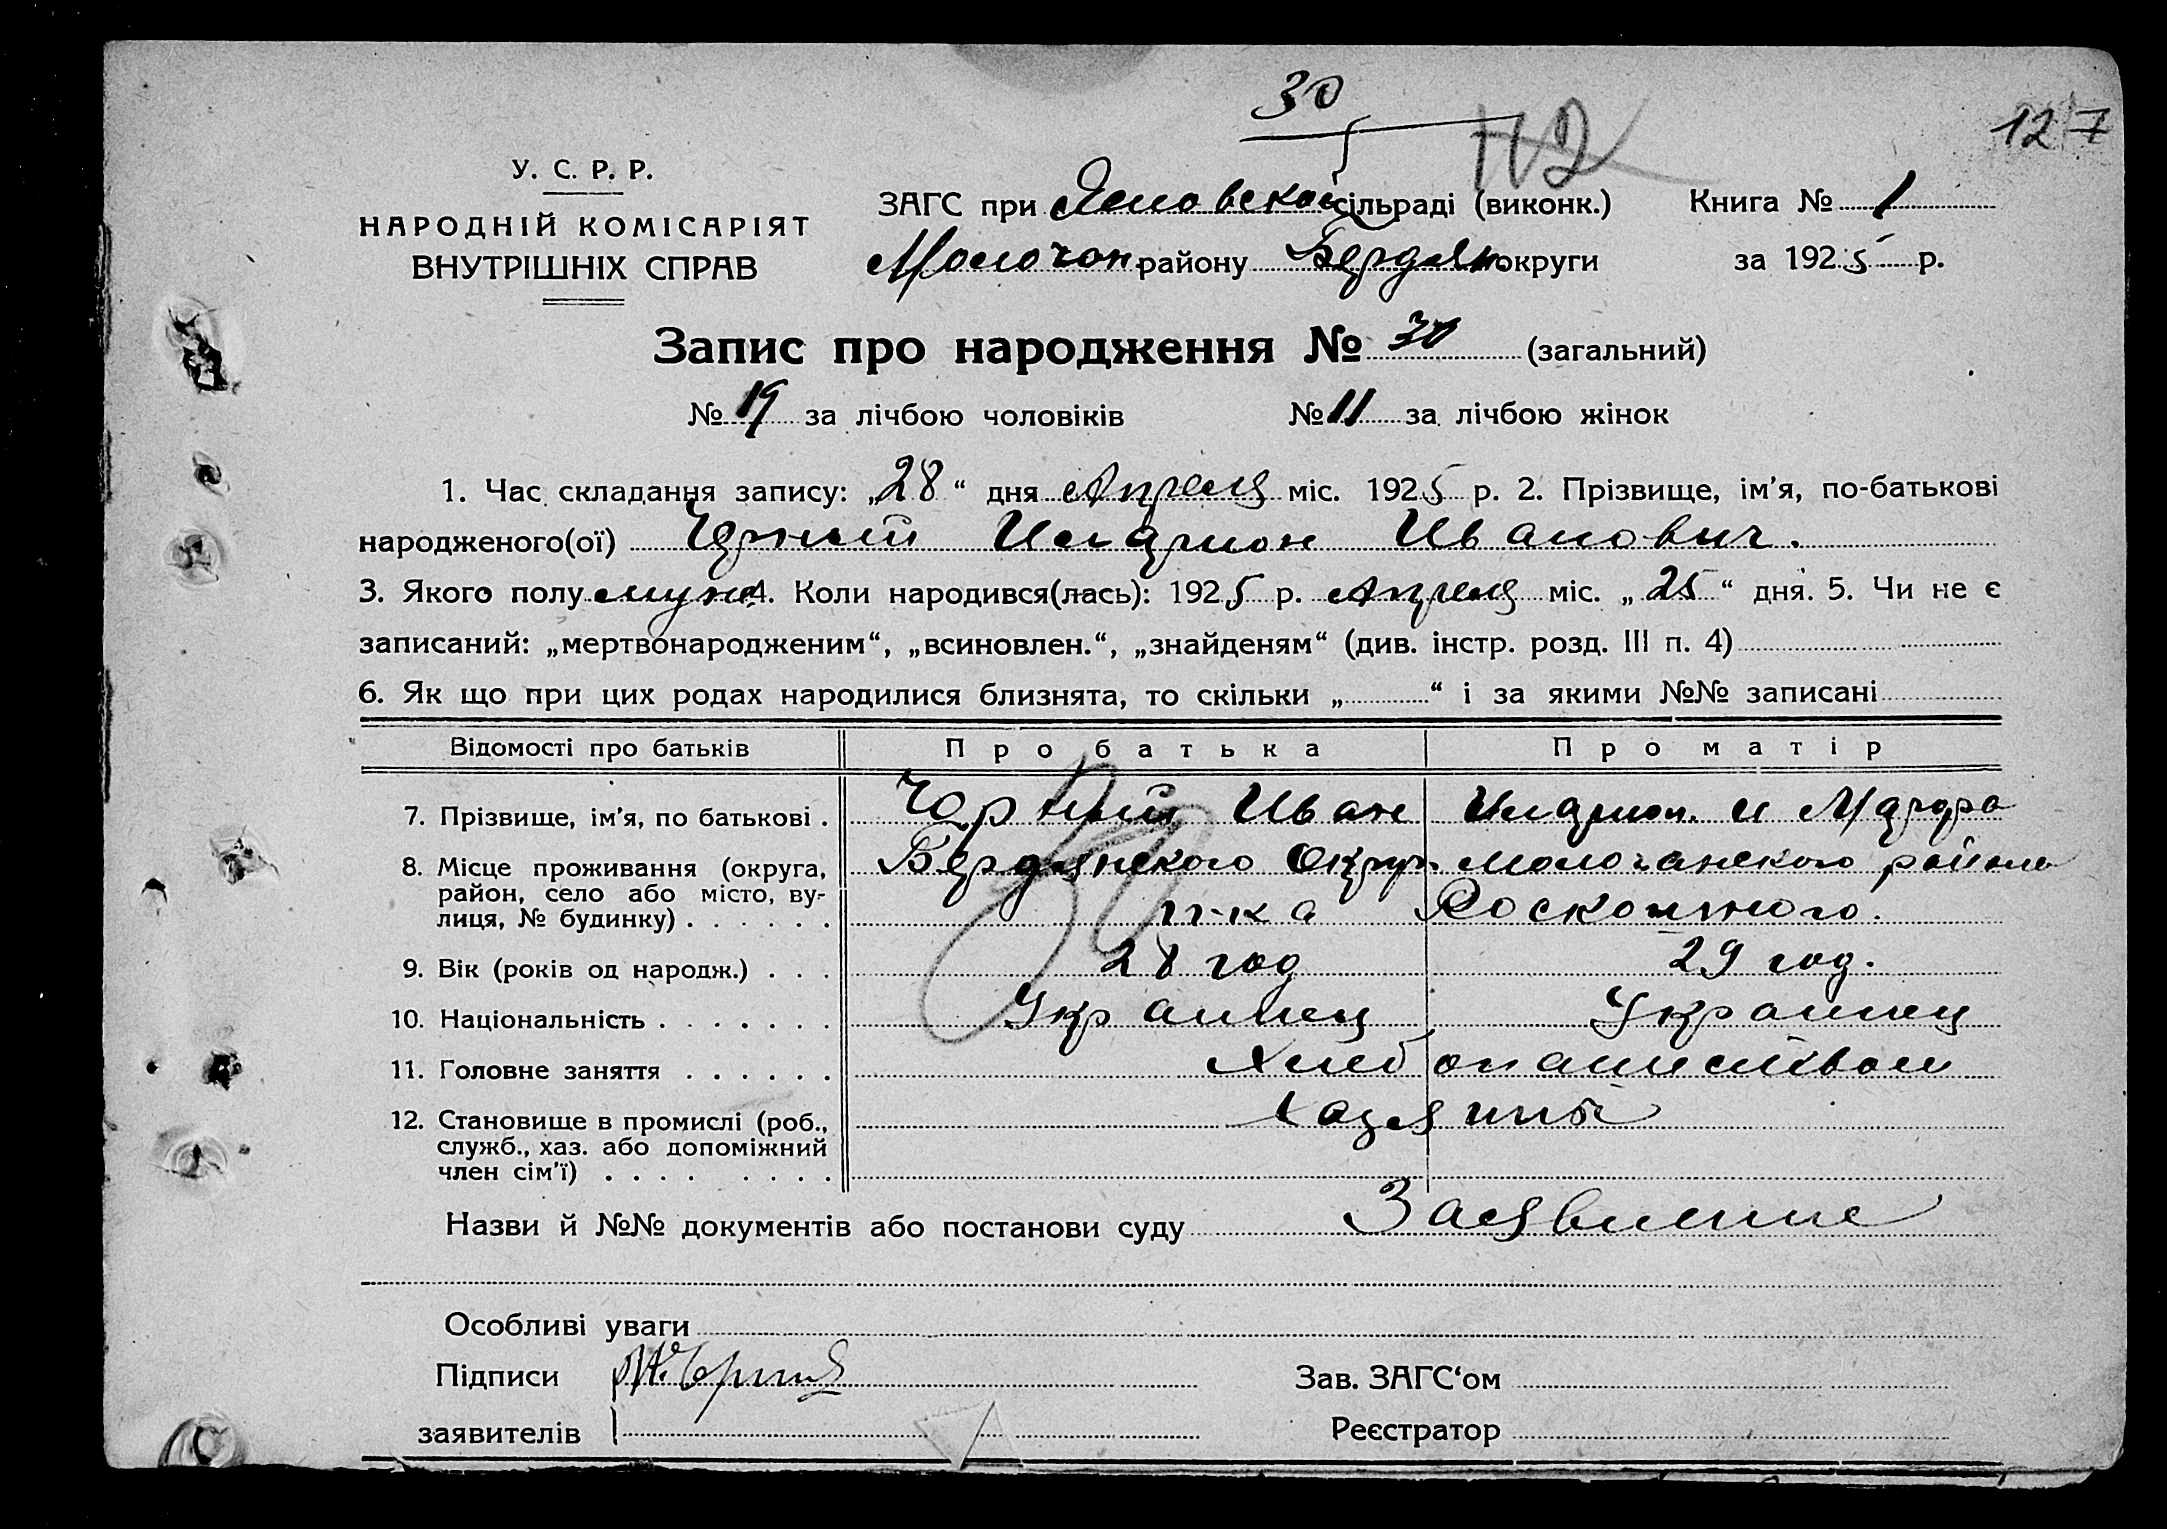 30
112
127
У. С. Р. Р.
НАРОДНІЙ КОМІСАРІЯТ
ВНУТРІШНІХ СПРАВ
ЗАГС при сільраді (виконк.) Книга № 1
Молочан. району Бердян. округи за 1925 р.
Запис про народження № 30 (загальний)
№ 19 за лічбою чоловіків № 11 за лічбою жінок
1. Час складання запису: „28“ дня Апреля міс. 1925 р. 2. Прізвище, ім'я, по-батькові
народженого(ої) Чорный Иларион Иванович.
3. Якого полу муж. 4. Коли народився(лась): 1925 р. Апреля міс. „25“ дня. 5. Чи не є
записаний: „мертвонародженим“, „всиновлен.“, „знайденям“ (див. інстр. розд. III п. 4)
6. Як що при цих родах народилися близнята, то скільки „ “ і за якими №№ записані
Відомості про батьків Про батька Про матір
7. Прізвище, ім'я, по батькові . Чорный Иван Иларион. и
8. Місце проживання (округа, Бердянского Округ. Молочанского района
район, село або місто, ву-
лиця, № будинку) . . . . . . п-ка Роскошного.
9. Вік (років од народж.) . . . 28 год 29 год.
10. Національність . . . . . . . Украинец Украинец
11. Головне заняття . . . . . . Хлебопашеством
12. Становище в промислі (роб., Хазяины
служб., хаз. або допоміжний
член сім'ї) . . . . . . . .
Назви й №№ документів або постанови суду Заявление
Особливі уваги
Підписи Зав. ЗАГС‘ом
заявителів Реєстратор